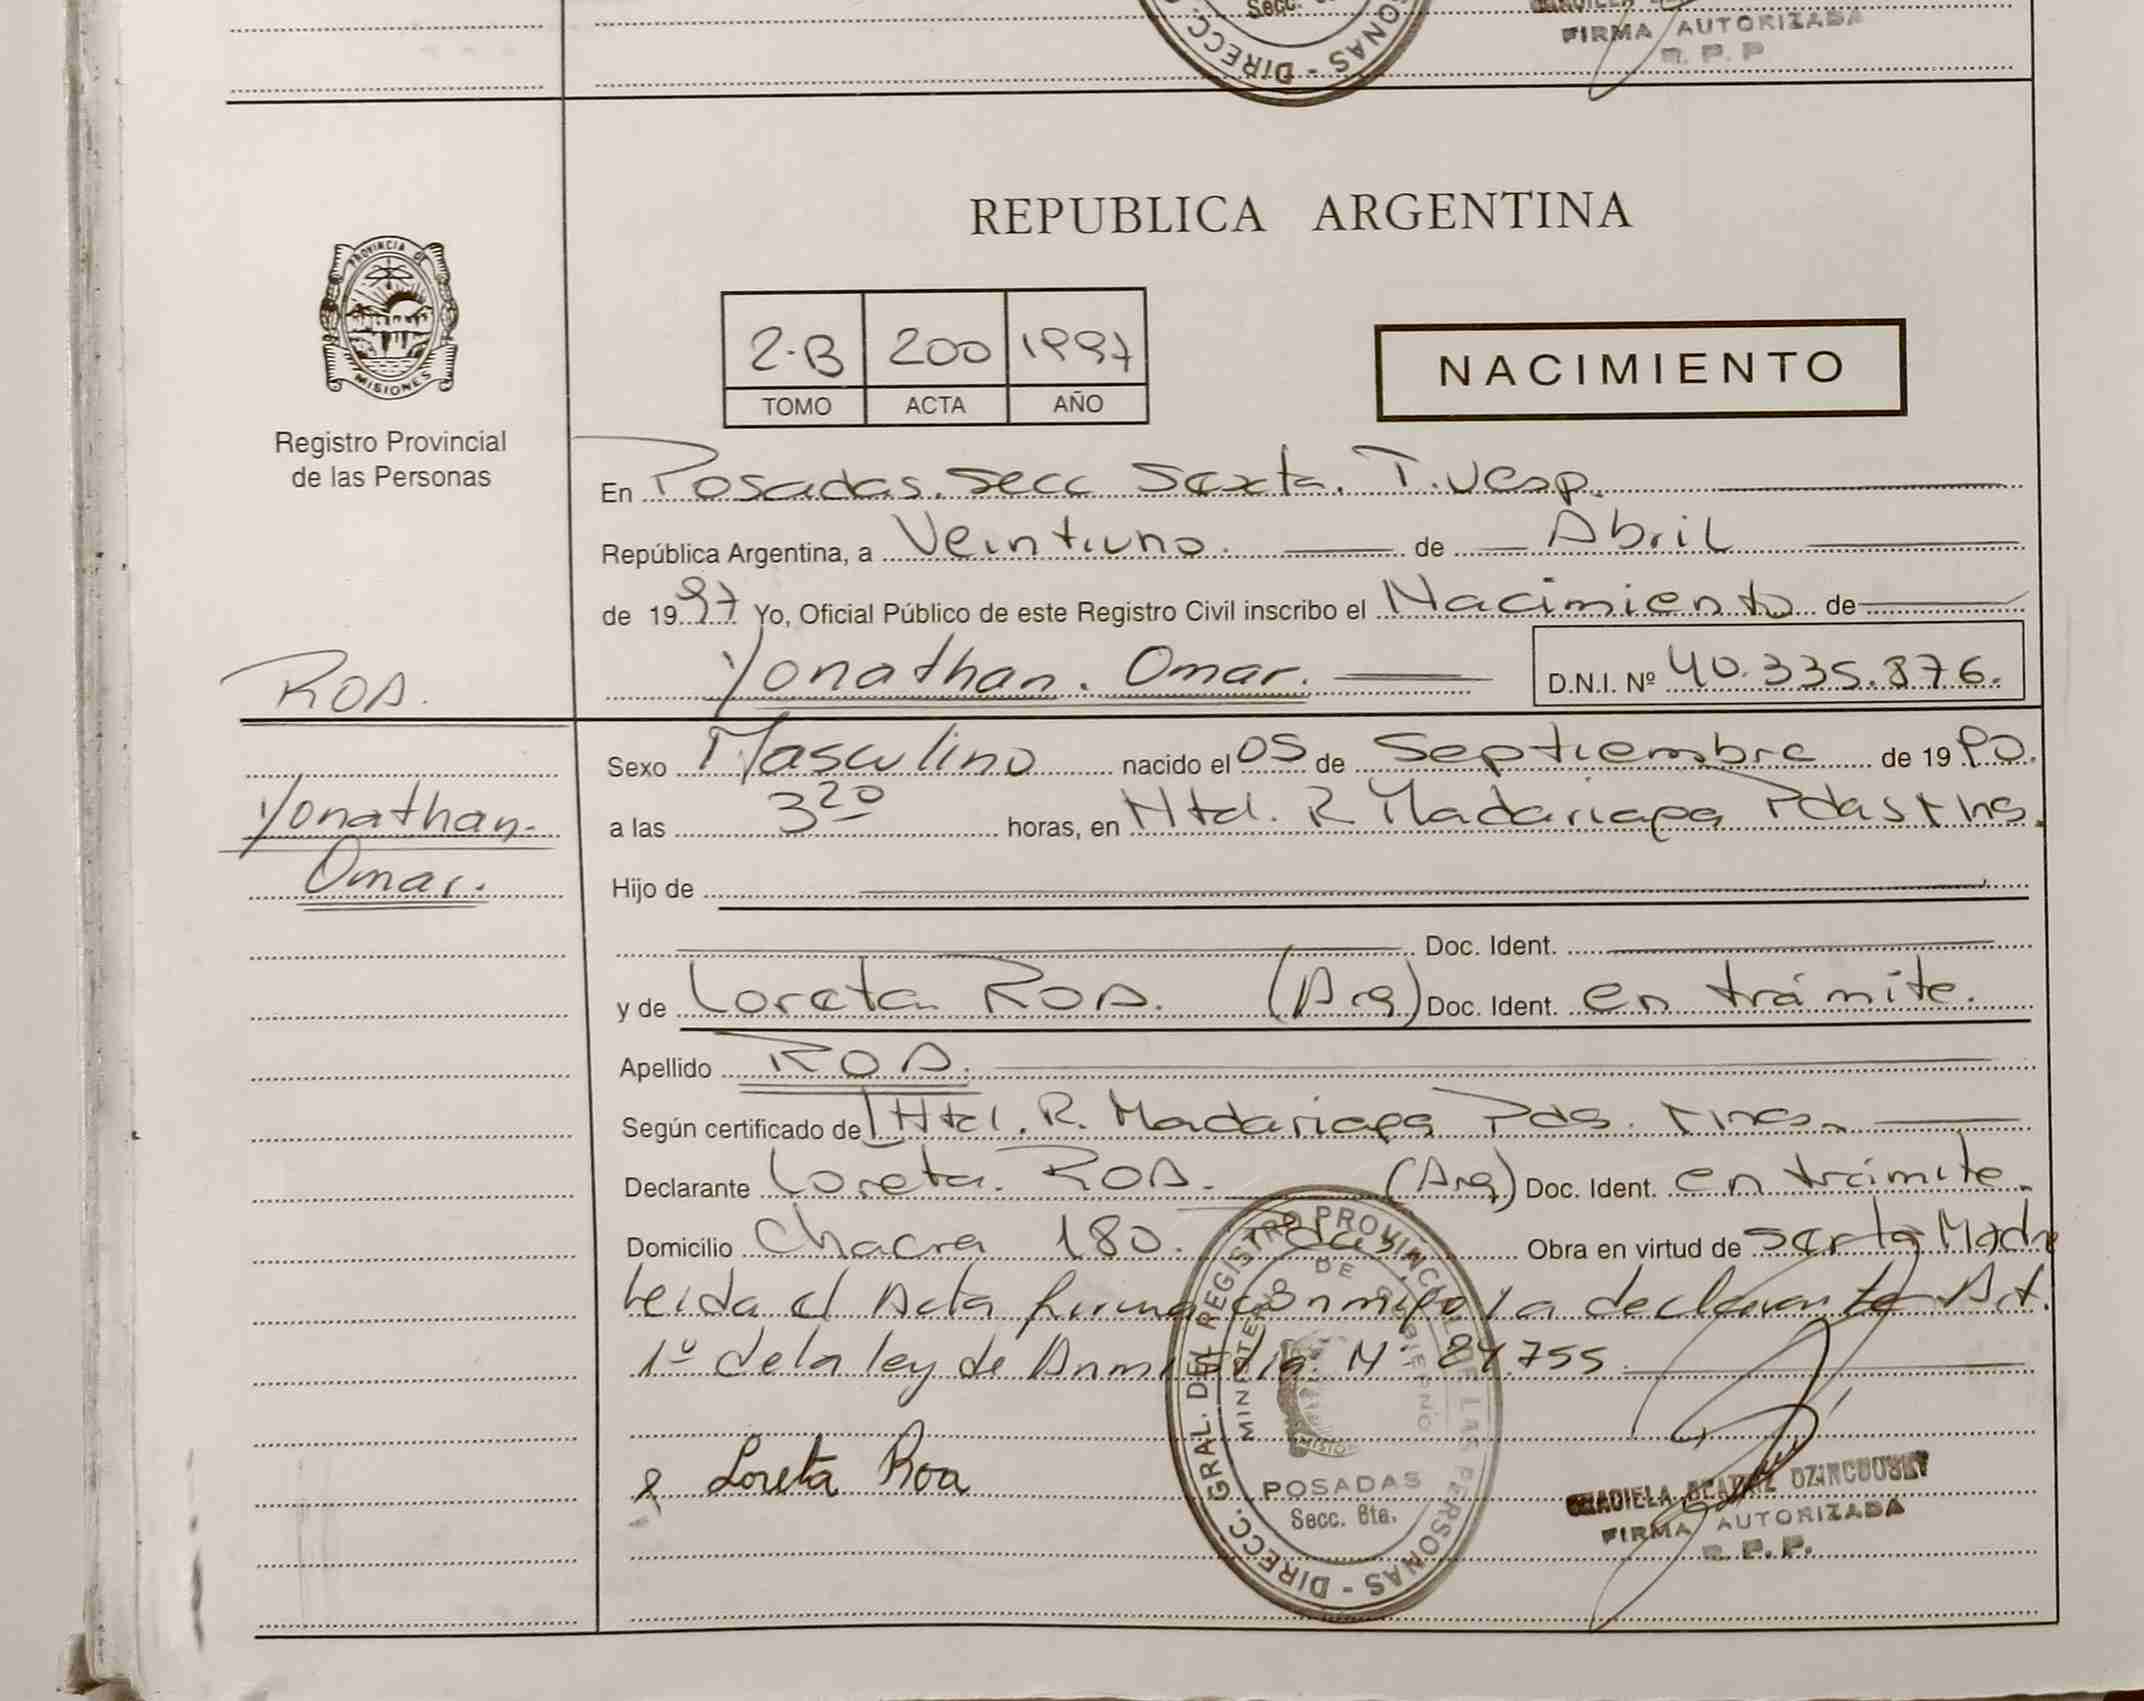 Secc.
ONAS - DIRECC.
FIRMA AUTORIZADA
R. P. P
PROVINCIA DE
MISIONES
Registro Provincial
de las Personas
REPUBLICA ARGENTINA
2-B 200 1997
TOMO ACTA AÑO
NACIMIENTO
En Posadas. Secc Sexta. T. Vesp.
República Argentina, a Veintiuno. de Abril
de 1997 Yo, Oficial Público de este Registro Civil inscribo el Nacimiento de
ROA.
Yonathan. Omar. D.N.I. Nº 40.335.876.
Yonathan.
Omar.
Sexo Masculino nacido el 05 de Septiembre de 1990.
a las 3 20 horas, en Htal. R Madariaga Pdas Mns.
Hijo de
Doc. Ident.
y de Loreta ROA. (Arg) Doc. Ident. en trámite.
Apellido ROA.
Según certificado de Htal. R. Madariaga Pds. Mnes.
Declarante Loreta. ROA. (Arg) Doc. Ident. en trámite.
Domicilio Chacra 180. Pdas. Obra en virtud de ser la Madre
Leida el Acta firma conmigo la declarante Art.
1º de la ley de Amnistia Nº 24755
Loreta Roa
DIRECC. GRAL. DEL REGISTRO PROVINCIAL DE LAS PERSONAS -
MINISTERIO DE GOBIERNO
MISIONES
POSADAS
Secc. 6ta.
GRACIELA BEATRIZ
FIRMA AUTORIZADA
R. P. P.